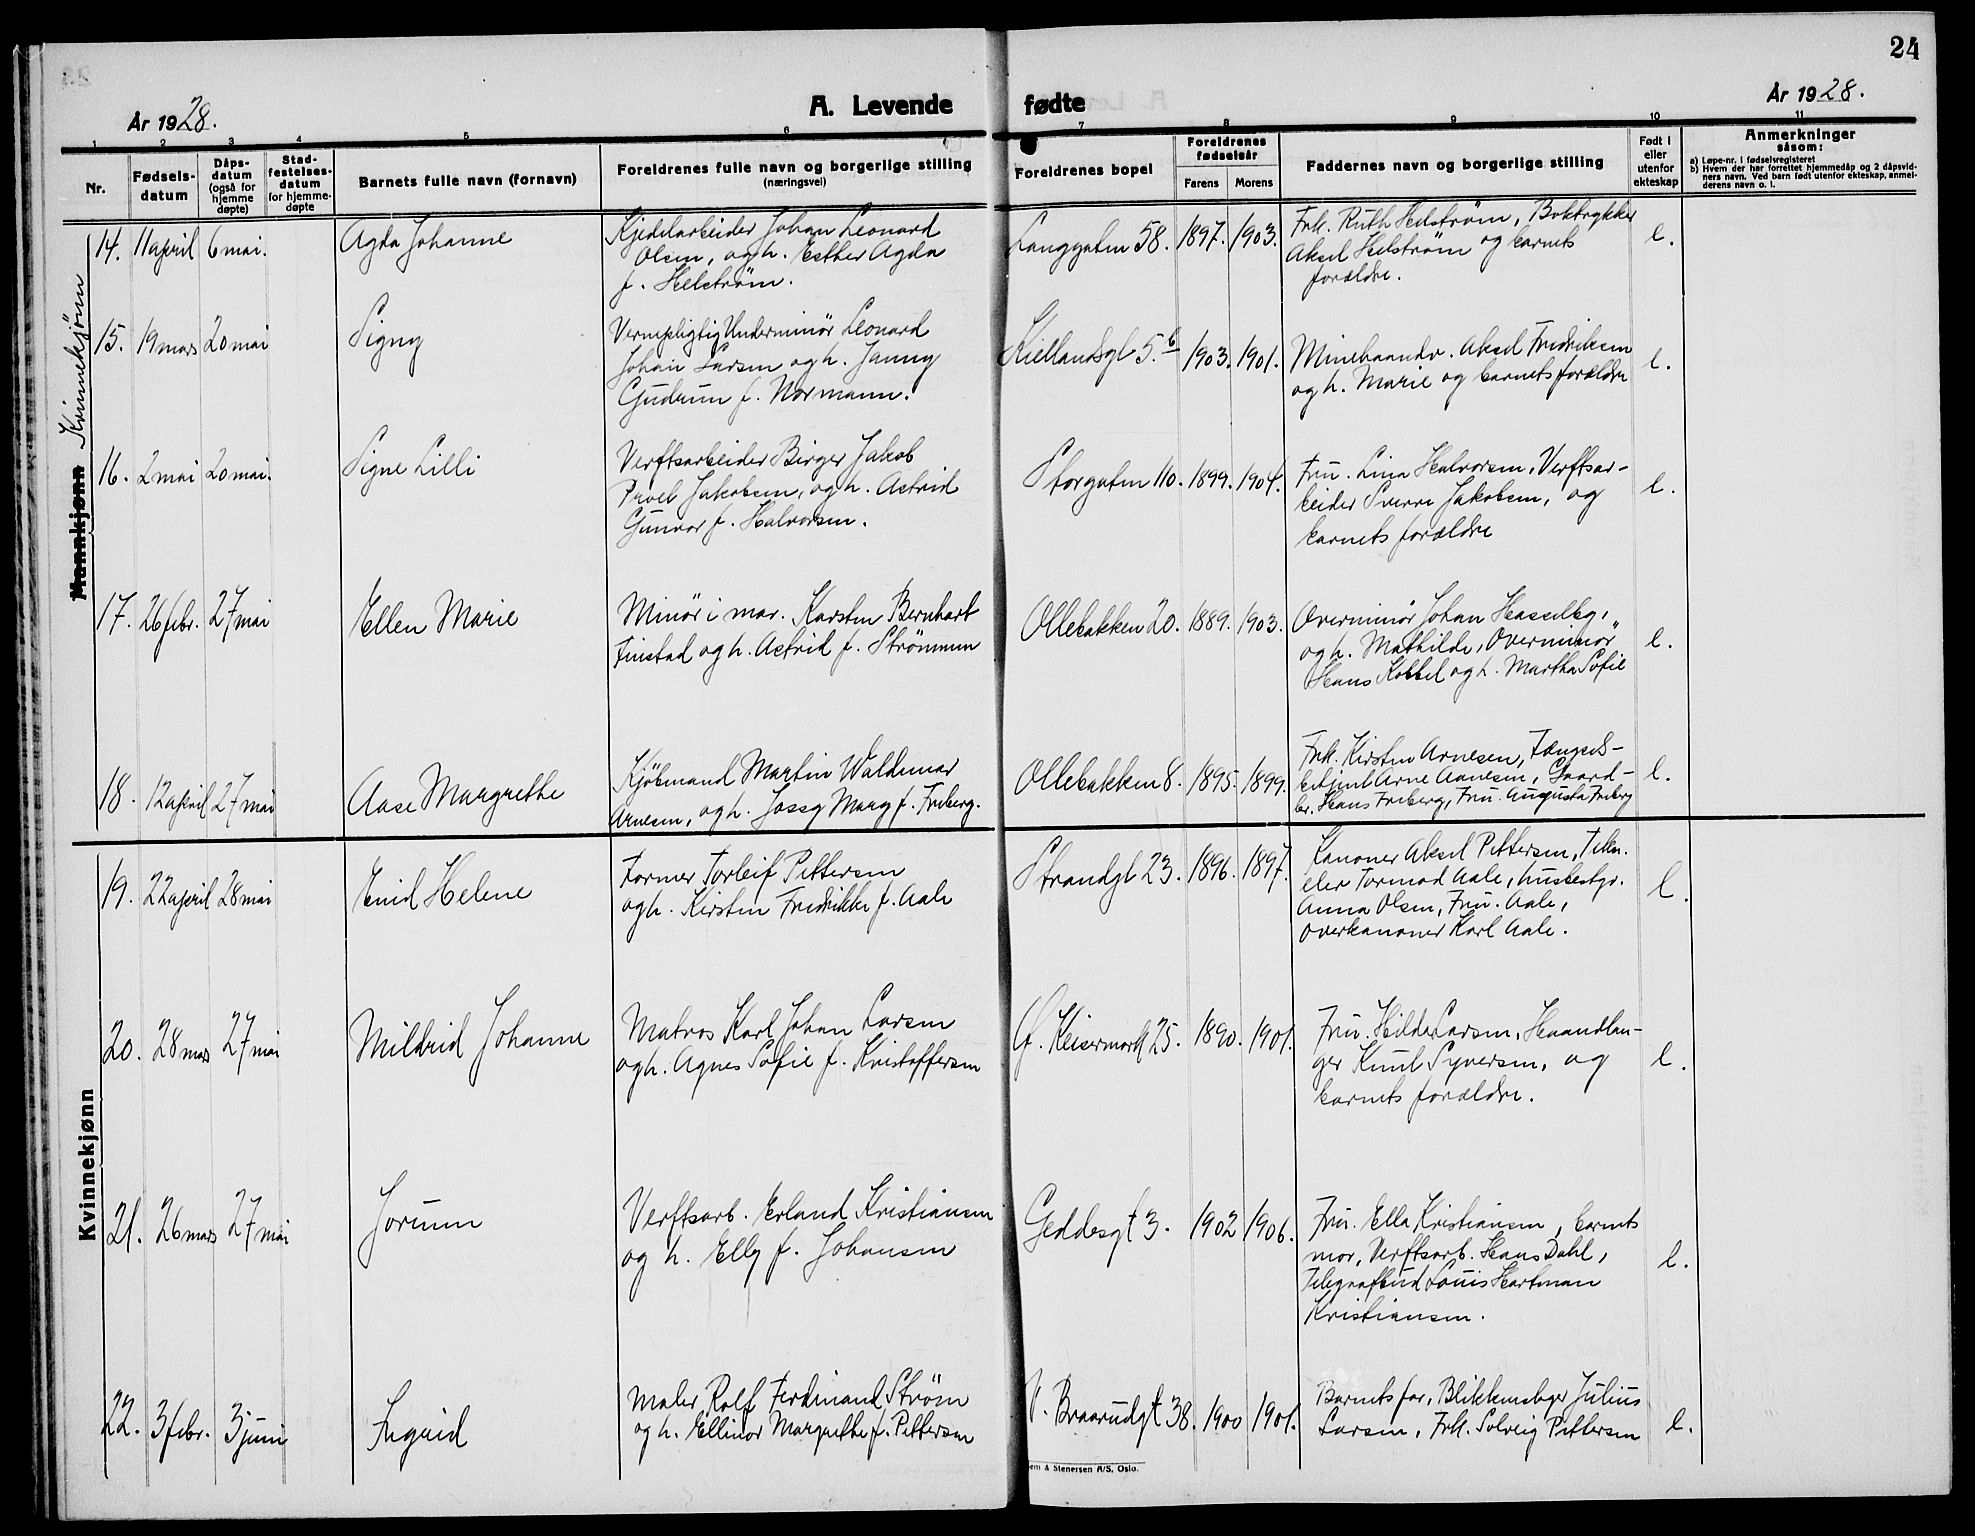 24
År 1928.
A. Levende fødte
År 1928.
1 2 3 4 5 6 7 8 9 10 11
Nr.
Fødsels-
datum
Dåps-
datum
(også for
hjemme
døpte)
Stad-
festelses-
datum
for hjemme-
døpte
Barnets fulle navn (fornavn)
Foreldrenes fulle navn og borgerlige stilling
(næringsvei)
Foreldrenes bopel
Foreldrenes
fødselsår
Farens Morens
Faddernes navn og borgerlige stilling
Født i
eller
utenfor
ekteskap
Anmerkninger
såsom:
a) Løpe-nr. i fødselsregisteret
b) Hvem der har forrettet hjemmedåp og 2 dåpsvid-
ners navn. Ved barn født utenfor ekteskap, anmel-
derens navn o. l.
Mannkjønn Kvinnekjønn
14. 11 april 6 mai.
Agda Johanne
Kjedelarbeider Johan Leonard
Olsen, og h. Esther Agda
f. Helström.
Langgaten 58. 1897. 1903.
Frk. Ruth Helström, Boktrykker
Aksel Helström og barnets
forældre.
e.
15. 19 mars 20 mai
Signy
Vernepligtig Underminör Leonard
Johan Larsen og h. Janny
Gudrun f. Normann.
Kiellandsgt 5. b 1903. 1901.
Minehaandv. Aksel Fredriksen
og h. Marie og barnets forældre
e.
16. 2 mai 20 mai.
Signe Lilli
Verftsarbeider Birger Jakob
Jakobsen, og h. Astrid
Gunvor f. Halvorsen.
Storgaten 110. 1899. 1904.
Fru. Lina Halvorsen, Verftsar-
beider Sverre Jakobsen, og
barnets forældre
e.
17. 26 febr. 27 mai
Ellen Marie
Minör i mar. Karsten Bernhart
Finstad og h. Astrid f. Strömmen
Ollebakken 20. 1889. 1903.
Overminör Johan Hasselbg,
og h. Mathilde, Overminör
Hans Kobbel og h. Martha Sofie
e.
18. 12 april 27 mai
Aase Margrethe
Kjöbmand Martin Waldemar
Arnesen, og h. Jossy Mary f. Friberg.
Ollebakken 8. 1895. 1899.
Frk. Kirsten Arnesen, Fængsels-
betjent Arne Arnesen, Gaard-
br. Hans Friberg, Fru. Augusta Friberg
e.
Kvinnekjønn
19. 22 april 28 mai
Enid Helene
Former Torleif Pettersen
og h. Kirsten Fredrikke f. Aale
Strandgt 23. 1896. 1897.
Kanoner Aksel Pettersen, Tekn.
elev Tormod Aale, husbestyr.
Anna Olsen, Fru. Aale,
overkanoner Karl Aale.
e.
20. 28 mars 27 mai
Mildrid Johanne
Matros Karl Johan Larsen
og h. Agnes Sofie f. Kristoffersen
G. Keisermark 25. 1890. 1901.
Fru. Hilda Larsen, Haandlan-
ger Knut Syversen, og
barnets forældre.
e.
21. 26 mars 27 mai
Jorunn
Verftsarb. Erland Kristiansen
og h. Elly f. Johansen
Geddesgt 3. 1902 1906.
Fru. Ella Kristiansen, barnets
mor, Verftsarb. Hans Dahl,
Telegrafbud Louis Hartman
Kristiansen.
e.
22. 3 febr. 3 juni
Ingrid
Maler Rolf Ferdinand Ström
og h. Ellinor Margrethe f. Pettersen
V. Braarudgt 38. 1900 1901.
Barnets far, Blikkenslager Julius
Larsen, Frk. Solveig Pettersen
e.
em & Stenersen A/S, Oslo.